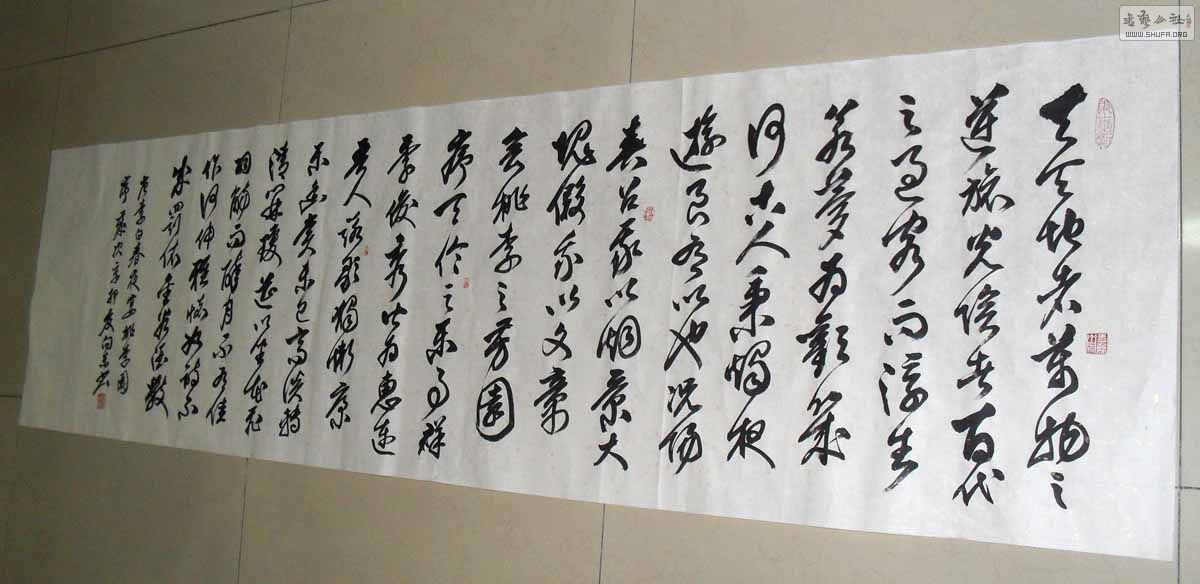 夫天地者万物之
逆旅光陰者百代
之過客而浮生
若夢為歡幾
何古人秉燭夜
遊良有以也况陽
春召我以烟景大
塊假我以文章
會桃李之芳園
序天倫之樂事群
季俊秀皆為惠連
吾人詠歌獨慚康
樂幽賞未已高談轉
清開瓊筵以坐花飛
羽觴而醉月不有佳
作何伸雅懷如詩不
成罰依金谷酒數
唐李白春夜宴桃李園
序歲次辛卯
书艺公社
WWW.SHUFA.ORG